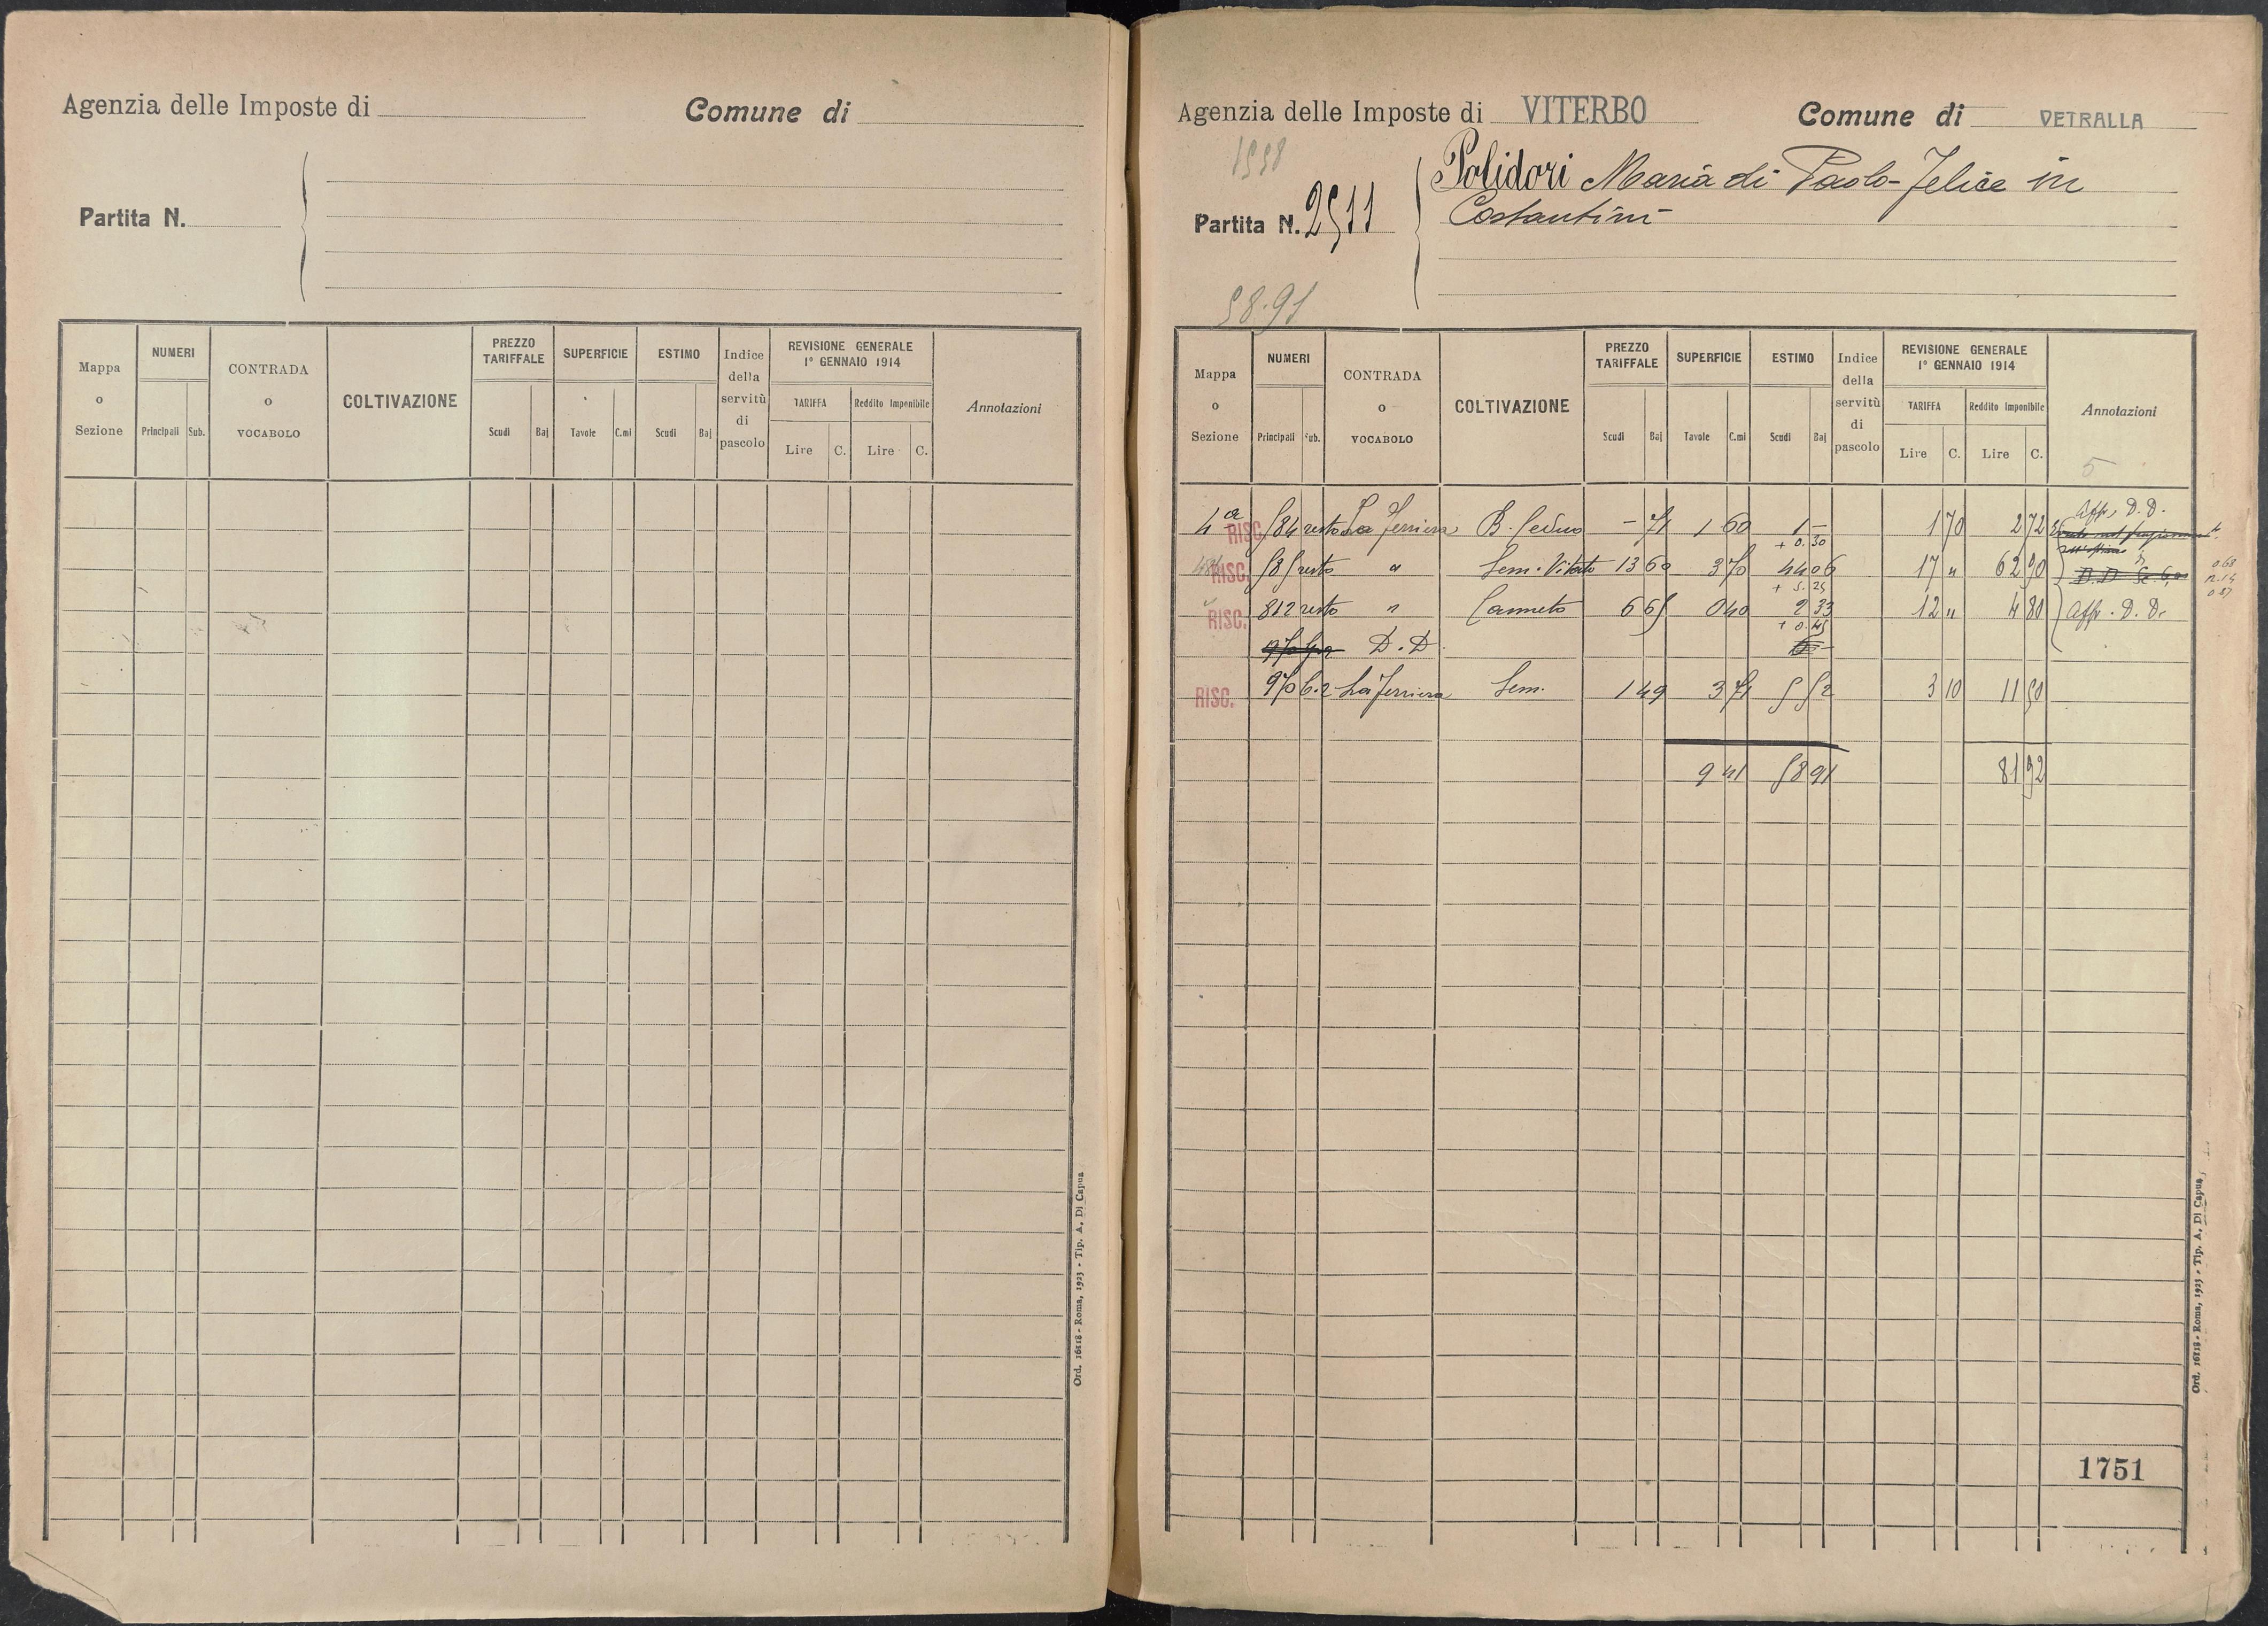 Agenzia delle Imposte di Comune di
Partita N.
Mappa o Sezione NUMERI Principali Sub. CONTRADA o VOCABOLO COLTIVAZIONE PREZZO TARIFFALE Scudi Baj SUPERFICIE Tavole C.mi ESTIMO Scudi Baj Indice della servitù di pascolo REVISIONE GENERALE 1° GENNAIO 1914 TARIFFA Lire C. Reddito Imponibile Lire C. Annotazioni
Ord. 16118 - Roma, 1923 - Tip. A. Di Capua
Agenzia delle Imposte di VITERBO Comune di VETRALLA
1558
Polidori Maria di Paolo-Felice in
Partita N. 2511 Costantini
58.91
Mappa o Sezione NUMERI Principali Sub. CONTRADA o VOCABOLO COLTIVAZIONE PREZZO TARIFFALE Scudi Baj SUPERFICIE Tavole C.mi ESTIMO Scudi Baj Indice della servitù di pascolo REVISIONE GENERALE 1° GENNAIO 1914 TARIFFA Lire C. Reddito Imponibile Lire C. Annotazioni
5
Aff. D. D.
4a RISC. 584 resto La Ferriera B. Ceduo - 71 1 60 1 - 1 70 2 72
+ 0.30
RISC. 585 resto " Sem. Vitato 13 60 3 70 44 06 17 " 62 90
+ 5.25
RISC. 812 resto " Canneto 6 65 0 40 2 33 12 " 4 80 Aff. D. D.
+ 0.45
D. D.
RISC. 970 6.2 La Ferriera Sem. 1 49 3 71 5 52 3 10 11 50
9 41 58 91 81 92
1751
Ord. 16118 - Roma, 1923 - Tip. A. Di Capua